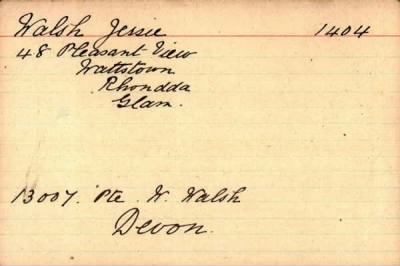 Walsh Jessie 1404
48 Pleasant View
Wattstown
Rhondda
Glam.
13007. Pte W. Walsh
Devon.